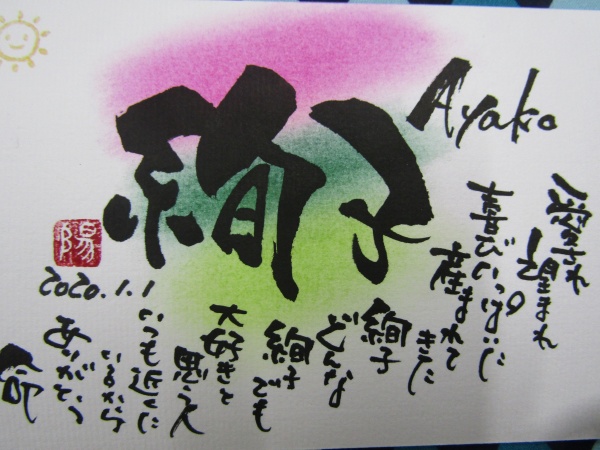 絢子
Ayako
愛され
望まれ
喜びいっぱいに
産まれて
きた
絢子
どんな
絢子でも
大好きと
思え
いつも近くに
いるから
ありがとう
命
陽
2020.1.1